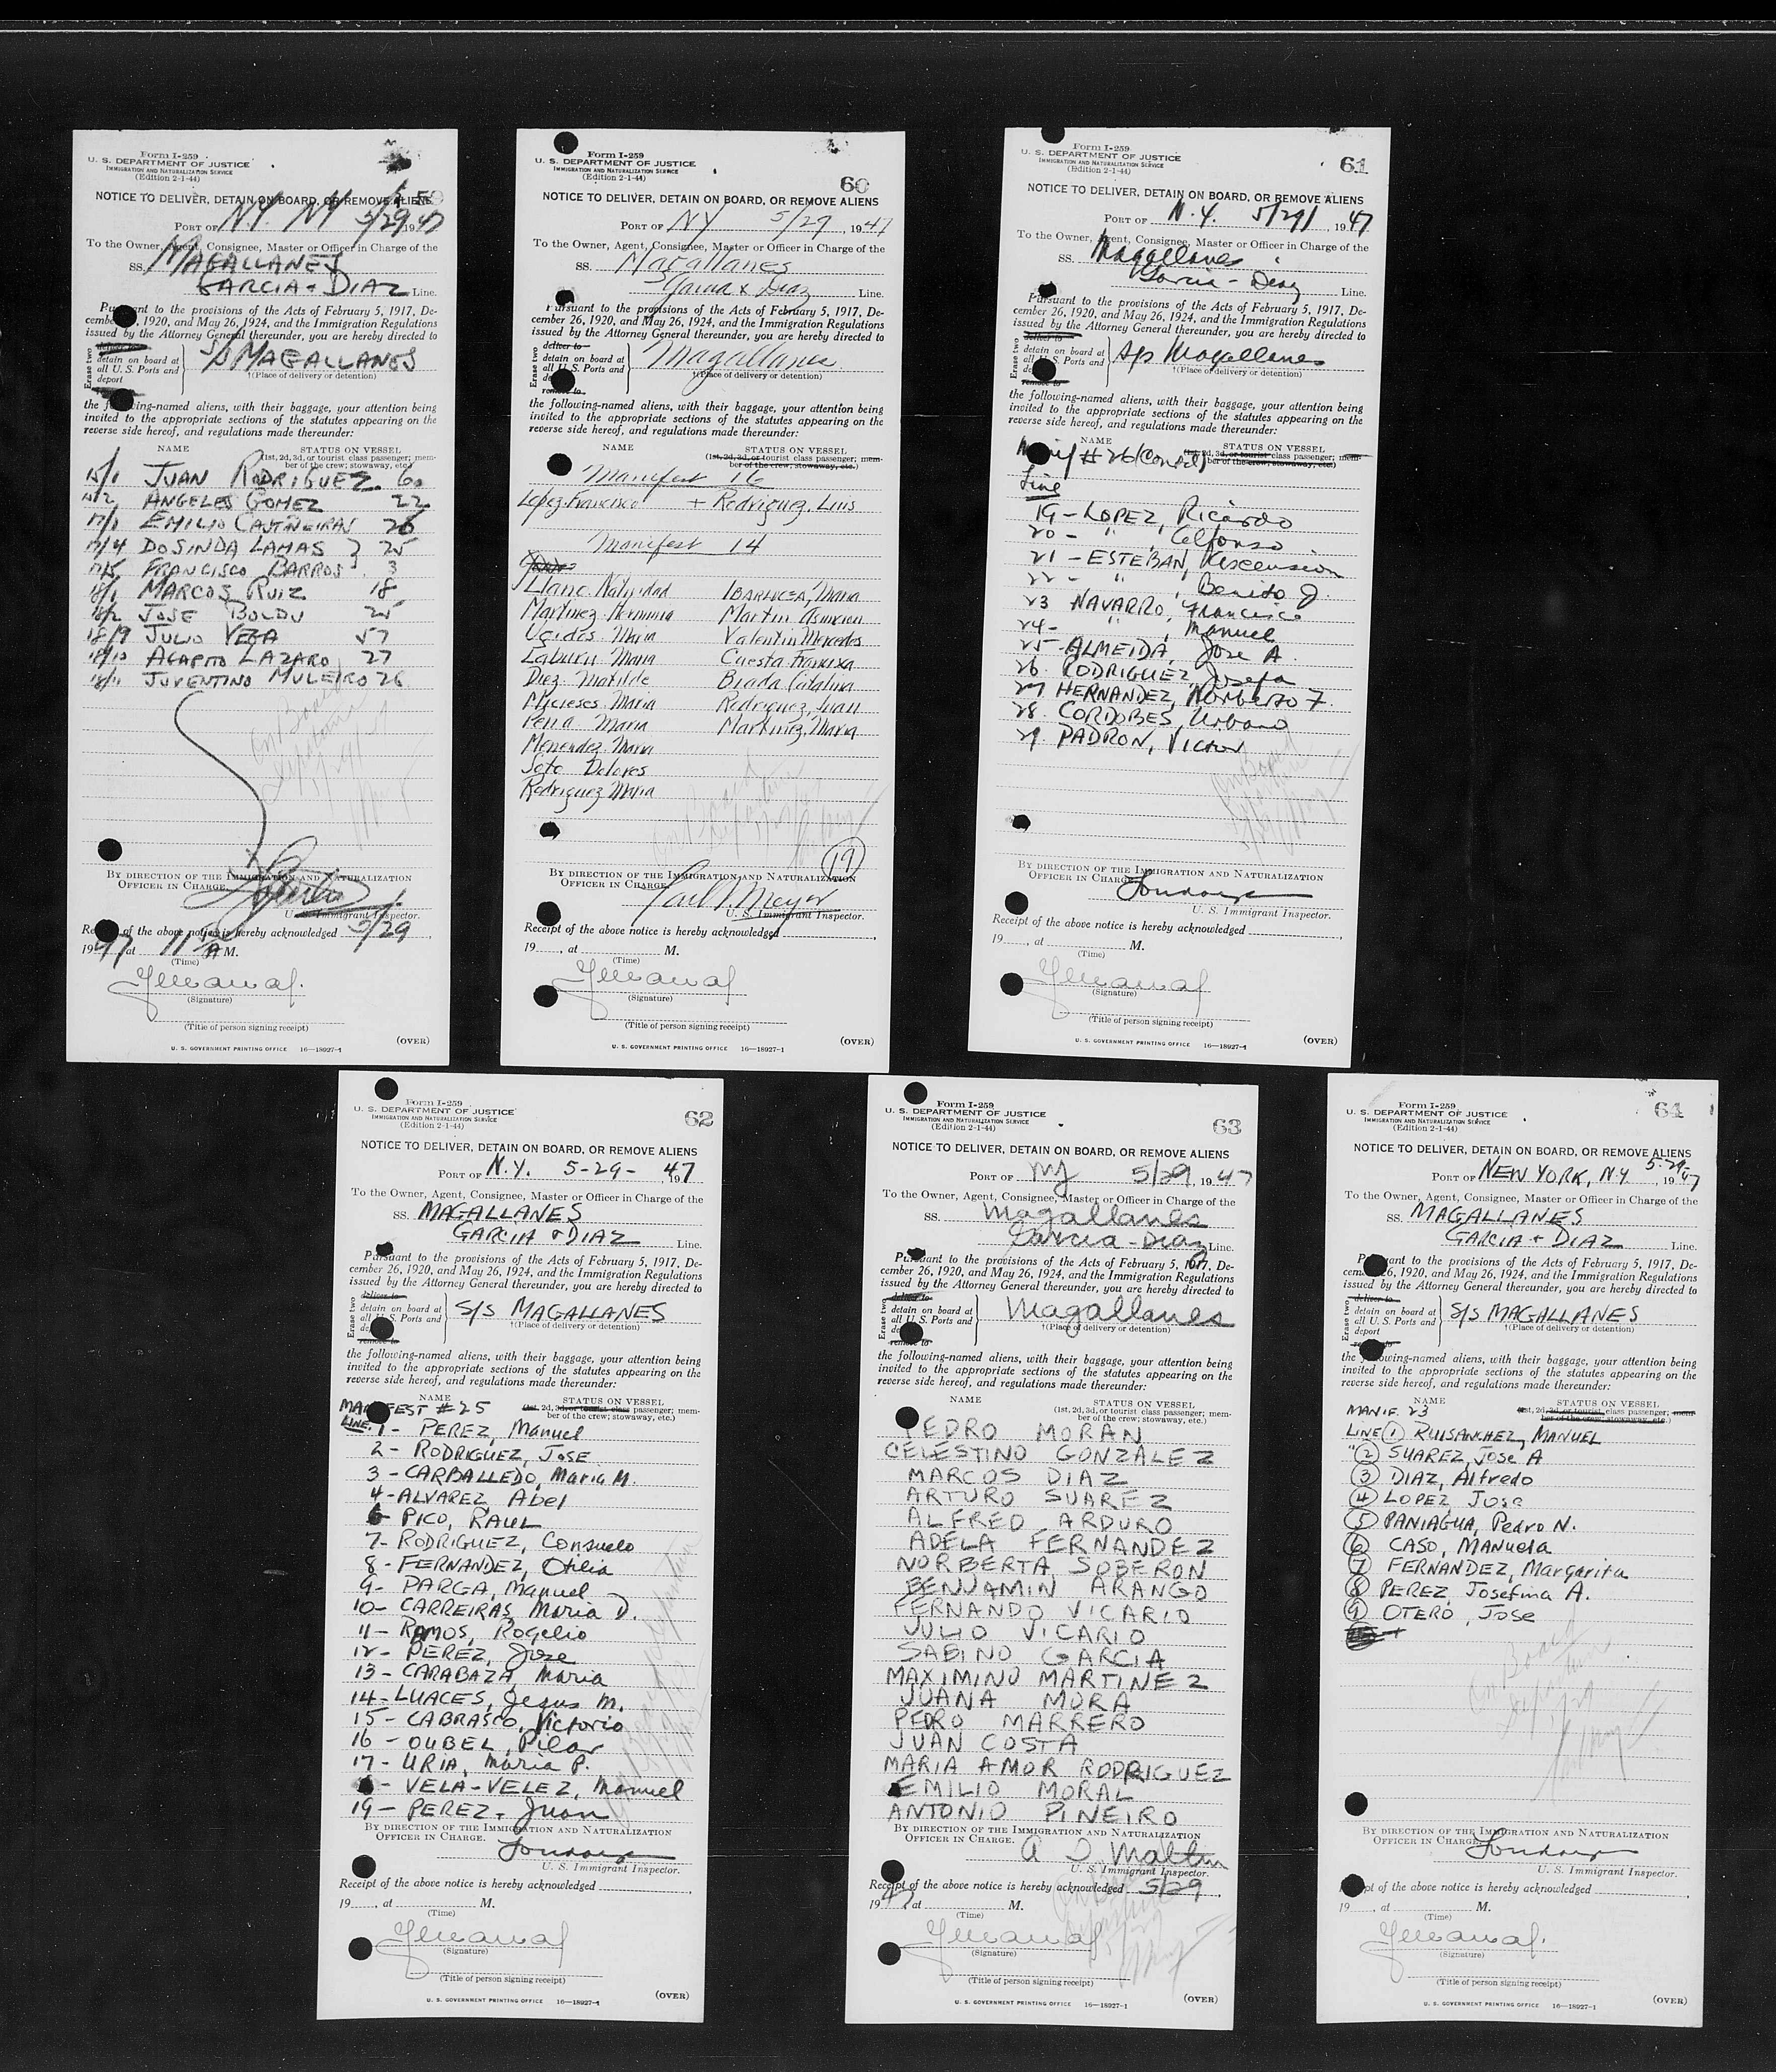 Form I-259
U. S. DEPARTMENT OF JUSTICE
IMMIGRATION AND NATURALIZATION SERVICE
(Edition 2-1-44)
NOTICE TO DELIVER, DETAIN ON BOARD, OR REMOVE ALIENS
PORT OF N.Y. NY 5/29 1947
To the Owner, Agent, Consignee, Master or Officer in Charge of the
SS. MAGALLANES
GARCIA + DIAZ Line.
Pursuant to the provisions of the Acts of February 5, 1917, De-
cember 26, 1920, and May 26, 1924, and the Immigration Regulations
issued by the Attorney General thereunder, you are hereby directed to
Erase two
deliver to
detain on board at
all U. S. Ports and
deport
S/S MAGALLANES
†(Place of delivery or detention)
the following-named aliens, with their baggage, your attention being
invited to the appropriate sections of the statutes appearing on the
reverse side hereof, and regulations made thereunder:
NAME STATUS ON VESSEL
(1st, 2d, 3d, or tourist class passenger; mem-
ber of the crew; stowaway, etc.)
15/1 JUAN RODRIGUEZ 60
ANGELES GOMEZ 22
17/1 EMILIO CASTIÑEIRAS 26
17/4 DOSINDA LAMAS } 25
17/5 FRANCISCO BARROS 3
18/1 MARCOS RUIZ 18
18/2 JOSE BOLDU 25
18/9 JULIO VEGA 57
18/10 AGAPITO LAZARO 27
18/11 JUVENTINO MULEIRO 26
On Board
Departure
BY DIRECTION OF THE IMMIGRATION AND NATURALIZATION
OFFICER IN CHARGE.
U. S. Immigrant Inspector.
Receipt of the above notice is hereby acknowledged 5/29,
1947 at 11 A M.
(Time)
(Signature)
(Title of person signing receipt)
(OVER)
U. S. GOVERNMENT PRINTING OFFICE 16—18927-1
Form I-259
U. S. DEPARTMENT OF JUSTICE
IMMIGRATION AND NATURALIZATION SERVICE
(Edition 2-1-44)
60
NOTICE TO DELIVER, DETAIN ON BOARD, OR REMOVE ALIENS
PORT OF NY 5/29, 1947
To the Owner, Agent, Consignee, Master or Officer in Charge of the
SS. Magallanes
Garcia & Diaz Line.
Pursuant to the provisions of the Acts of February 5, 1917, De-
cember 26, 1920, and May 26, 1924, and the Immigration Regulations
issued by the Attorney General thereunder, you are hereby directed to
Erase two
deliver to
detain on board at
all U. S. Ports and
deport
remove to
Magallanes
†(Place of delivery or detention)
the following-named aliens, with their baggage, your attention being
invited to the appropriate sections of the statutes appearing on the
reverse side hereof, and regulations made thereunder:
NAME STATUS ON VESSEL
(1st, 2d, 3d, or tourist class passenger; mem-
ber of the crew; stowaway, etc.)
Manifest 16
Lopez, Francisco + Rodriguez, Luis
Manifest 14
Llano, Natividad
Martinez, Herminia Martin, Asuncion
Maria Valentin, Mercedes
Maria Cuesta, Francisca
Diez, Matilde Catalina
Maria Rodriguez, Juan
Pena, Maria Martinez, Maria
Menendez, Maria
Soto Dolores
Rodriguez Maria
On Board
Departure
(19)
BY DIRECTION OF THE IMMIGRATION AND NATURALIZATION
OFFICER IN CHARGE.
Meyer
U. S. Immigrant Inspector.
Receipt of the above notice is hereby acknowledged
19 , at M.
(Time)
(Signature)
(Title of person signing receipt)
(OVER)
U. S. GOVERNMENT PRINTING OFFICE 16—18927-1
Form I-259
U. S. DEPARTMENT OF JUSTICE
IMMIGRATION AND NATURALIZATION SERVICE
(Edition 2-1-44)
61
NOTICE TO DELIVER, DETAIN ON BOARD, OR REMOVE ALIENS
PORT OF N.Y. 5/29/ 1947
To the Owner, Agent, Consignee, Master or Officer in Charge of the
SS. Magallanes
Garcia - Diaz Line.
Pursuant to the provisions of the Acts of February 5, 1917, De-
cember 26, 1920, and May 26, 1924, and the Immigration Regulations
issued by the Attorney General thereunder, you are hereby directed to
Erase two
deliver to
detain on board at
all U. S. Ports and
deport
remove to
S/s Magallanes
†(Place of delivery or detention)
the following-named aliens, with their baggage, your attention being
invited to the appropriate sections of the statutes appearing on the
reverse side hereof, and regulations made thereunder:
NAME STATUS ON VESSEL
(1st, 2d, 3d, or tourist class passenger; mem-
ber of the crew; stowaway, etc.)
Manif #26 (Cont'd)
Line
19 - LOPEZ, Ricardo
20 - " , Alfonso
21 - ESTEBAN, Ascension
22 - " , Benito J.
23 NAVARRO, Francisco
24 - " , Manuel
25 - ALMEIDA, Jose A.
26. RODRIGUEZ, Josefa
27 HERNANDEZ, Norberto F.
28. CORDOBES, Urbano
29. PADRON, Victor
On Board
Departure
BY DIRECTION OF THE IMMIGRATION AND NATURALIZATION
OFFICER IN CHARGE.
U. S. Immigrant Inspector.
Receipt of the above notice is hereby acknowledged
19 , at M.
(Time)
(Signature)
(Title of person signing receipt)
(OVER)
U. S. GOVERNMENT PRINTING OFFICE 16—18927-1
Form I-259
U. S. DEPARTMENT OF JUSTICE
IMMIGRATION AND NATURALIZATION SERVICE
(Edition 2-1-44)
62
NOTICE TO DELIVER, DETAIN ON BOARD, OR REMOVE ALIENS
PORT OF N.Y. 5-29- 1947
To the Owner, Agent, Consignee, Master or Officer in Charge of the
SS. MAGALLANES
GARCIA + DIAZ Line.
Pursuant to the provisions of the Acts of February 5, 1917, De-
cember 26, 1920, and May 26, 1924, and the Immigration Regulations
issued by the Attorney General thereunder, you are hereby directed to
Erase two
deliver to
detain on board at
all U. S. Ports and
deport
remove to
S/S MAGALLANES
†(Place of delivery or detention)
the following-named aliens, with their baggage, your attention being
invited to the appropriate sections of the statutes appearing on the
reverse side hereof, and regulations made thereunder:
NAME STATUS ON VESSEL
(1st, 2d, 3d, or tourist class passenger; mem-
ber of the crew; stowaway, etc.)
MANIFEST #25
LINE. 1 - PEREZ, Manuel
2 - RODRIGUEZ, JOSE
3 - CARBALLEDO, Maria M.
4 - ALVAREZ Abel
6 - PICO, RAUL
7 - RODRIGUEZ, Consuelo
8 - FERNANDEZ, Otilia
9 - PARGA, Manuel
10 - CARREIRAS, Maria D.
11 - RAMOS, Rogelio
12 - PEREZ, Jose
13 - CARABAZA, Maria
14 - LUACES, Jesus M.
15 - CABRASCO, Victorio
16 - OUBEL, Pilar
17 - URIA, Maria P.
- VELA-VELEZ, Manuel
19 - PEREZ, Juan
BY DIRECTION OF THE IMMIGRATION AND NATURALIZATION
OFFICER IN CHARGE.
U. S. Immigrant Inspector.
Receipt of the above notice is hereby acknowledged
19 , at M.
(Time)
(Signature)
(Title of person signing receipt)
(OVER)
U. S. GOVERNMENT PRINTING OFFICE 16—18927-1
Form I-259
U. S. DEPARTMENT OF JUSTICE
IMMIGRATION AND NATURALIZATION SERVICE
(Edition 2-1-44)
63
NOTICE TO DELIVER, DETAIN ON BOARD, OR REMOVE ALIENS
PORT OF NY 5/29, 1947
To the Owner, Agent, Consignee, Master or Officer in Charge of the
SS. Magallanes
Garcia - Diaz Line.
Pursuant to the provisions of the Acts of February 5, 1917, De-
cember 26, 1920, and May 26, 1924, and the Immigration Regulations
issued by the Attorney General thereunder, you are hereby directed to
Erase two
deliver to
detain on board at
all U. S. Ports and
deport
remove to
Magallanes
†(Place of delivery or detention)
the following-named aliens, with their baggage, your attention being
invited to the appropriate sections of the statutes appearing on the
reverse side hereof, and regulations made thereunder:
NAME STATUS ON VESSEL
(1st, 2d, 3d, or tourist class passenger; mem-
ber of the crew; stowaway, etc.)
PEDRO MORAN
CELESTINO GONZALEZ
MARCOS DIAZ
ARTURO SUAREZ
ALFRED ARDURO
ADELA FERNANDEZ
NORBERTA SOBERON
BENJAMIN ARANGO
FERNANDO VICARIO
JULIO VICARIO
SABINO GARCIA
MAXIMINO MARTINEZ
JUANA MORA
PEDRO MARRERO
JUAN COSTA
MARIA AMOR RODRIGUEZ
EMILIO MORAL
ANTONIO PINEIRO
BY DIRECTION OF THE IMMIGRATION AND NATURALIZATION
OFFICER IN CHARGE.
U. S. Immigrant Inspector.
Receipt of the above notice is hereby acknowledged 5/29,
1947 at M.
(Time)
(Signature)
(Title of person signing receipt)
(OVER)
U. S. GOVERNMENT PRINTING OFFICE 16—18927-1
Form I-259
U. S. DEPARTMENT OF JUSTICE
IMMIGRATION AND NATURALIZATION SERVICE
(Edition 2-1-44)
64
NOTICE TO DELIVER, DETAIN ON BOARD, OR REMOVE ALIENS
PORT OF NEW YORK, N.Y. 5-29-, 1947
To the Owner, Agent, Consignee, Master or Officer in Charge of the
SS. MAGALLANES
GARCIA + DIAZ Line.
Pursuant to the provisions of the Acts of February 5, 1917, De-
cember 26, 1920, and May 26, 1924, and the Immigration Regulations
issued by the Attorney General thereunder, you are hereby directed to
Erase two
deliver to
detain on board at
all U. S. Ports and
deport
remove to
S/S MAGALLANES
†(Place of delivery or detention)
the following-named aliens, with their baggage, your attention being
invited to the appropriate sections of the statutes appearing on the
reverse side hereof, and regulations made thereunder:
NAME STATUS ON VESSEL
(1st, 2d, 3d, or tourist class passenger; mem-
ber of the crew; stowaway, etc.)
MANIF. 23
LINE (1) RUISANCHEZ, MANUEL
" (2) SUAREZ, Jose A
(3) DIAZ, Alfredo
(4) LOPEZ Jose
(5) PANIAGUA, Pedro N.
(6) CASO, MANUELA
(7) FERNANDEZ, Margarita
(8) PEREZ, Josefina A.
(9) OTERO, Jose
On Board
Departure
5/29
BY DIRECTION OF THE IMMIGRATION AND NATURALIZATION
OFFICER IN CHARGE.
U. S. Immigrant Inspector.
Receipt of the above notice is hereby acknowledged
19 , at M.
(Time)
(Signature)
(Title of person signing receipt)
(OVER)
U. S. GOVERNMENT PRINTING OFFICE 16—18927-1